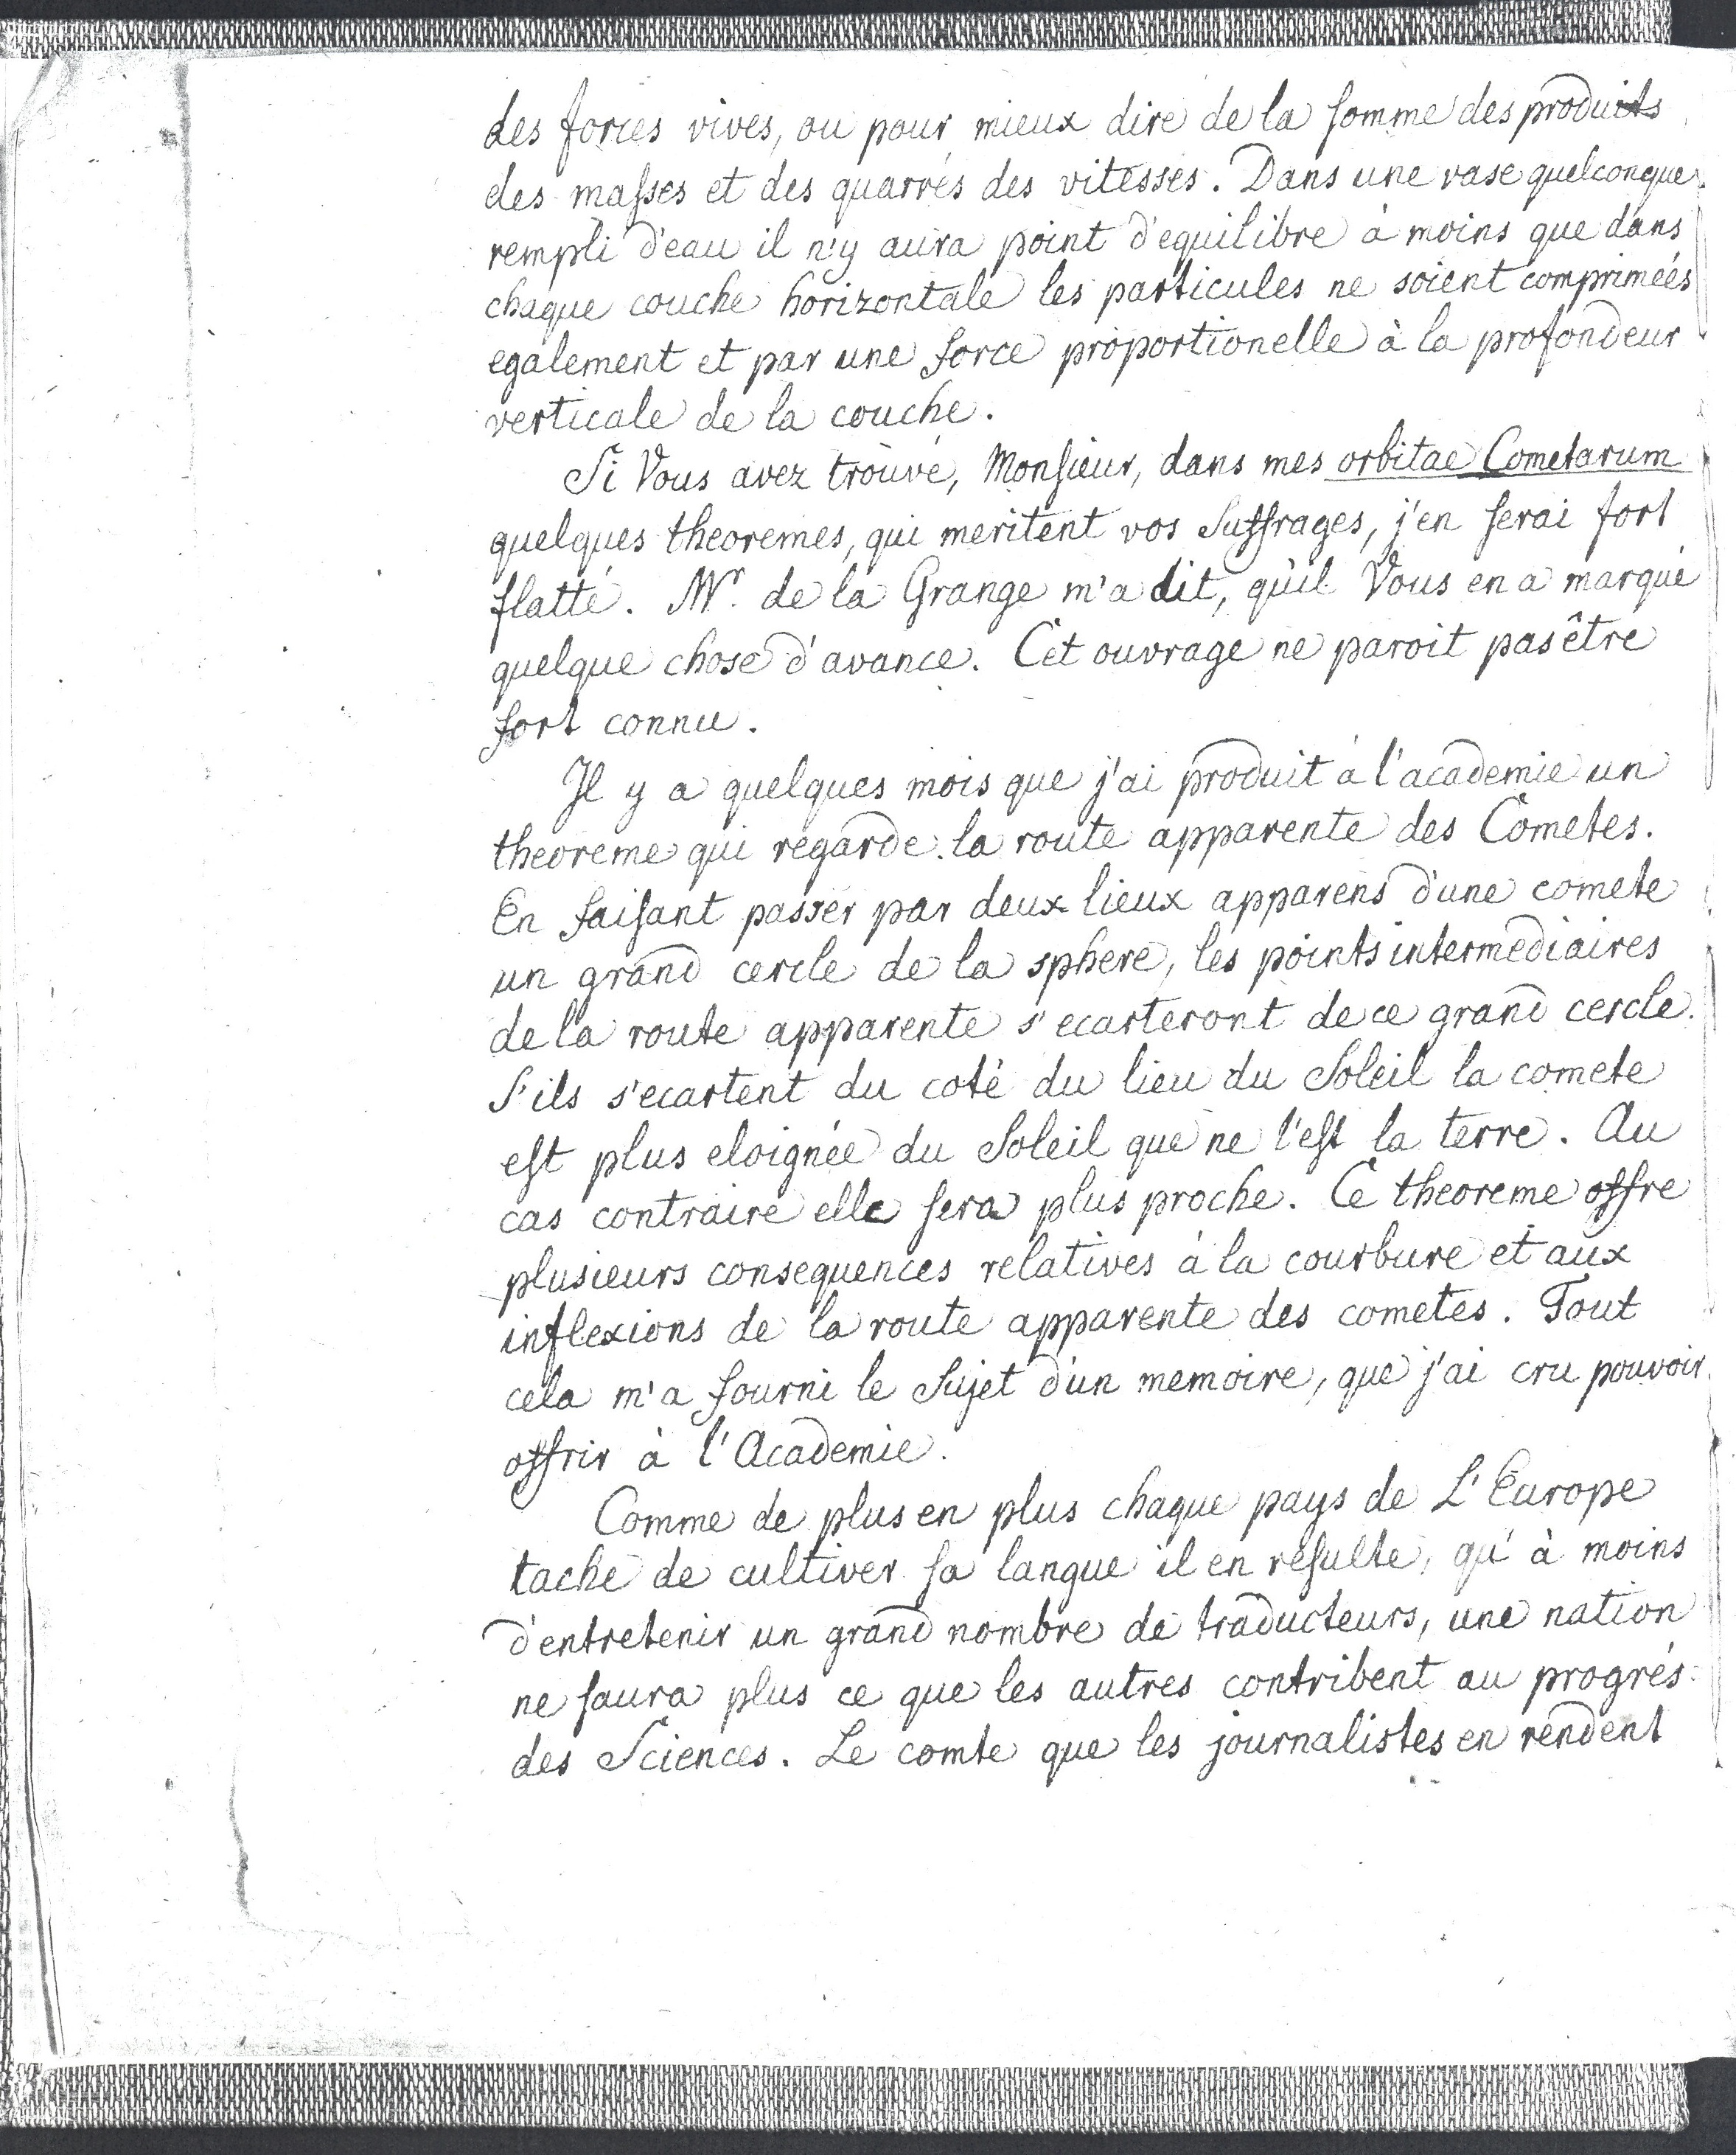 des forces vives, ou pour mieux dire de la somme des produits
des masses et des quarrés des vitesses. Dans une vase quelconque
rempli d'eau il n'y aura point d'equilibre à moins que dans
chaque couche horizontale les particules ne soient compriméés
egalement et par une force proportionelle à la profondeur
verticale de la couche.
Si Vous avez trouvé, Monsieur, dans mes orbitae Cometarum
quelques theoremes, qui meritent vos Suffrages, j'en serai fort
flatté. Mr. de la Grange m'a dit, qu'il Vous en a marqué
quelque chose d'avance. Cet ouvrage ne paroit pas être
fort connu.
Il y a quelques mois que j'ai produit à l'academie un
theoreme qui regarde la route apparente des Cometes.
En faisant passer par deux lieux apparens d'une comete
un grand cercle de la sphere, les points intermediaires
de la route apparente s'ecarteront de ce grand cercle.
S'ils s'ecartent du coté du lieu du Soleil la comete
est plus eloignée du Soleil que ne l'est la terre. Au
cas contraire elle sera plus proche. Ce theoreme offre
plusieurs consequences relatives à la courbure et aux
inflexions de la route apparente des cometes. Tout
cela m'a fourni le Sujet d'un memoire, que j'ai cru pouvoir
offrir à l'Academie.
Comme de plus en plus chaque pays de L'Europe
tache de cultiver sa langue il en résulte, qu'à moins
d'entretenir un grand nombre de traducteurs, une nation
ne saura plus ce que les autres contribent au progrés
des Sciences. Le comte que les journalistes en rendent